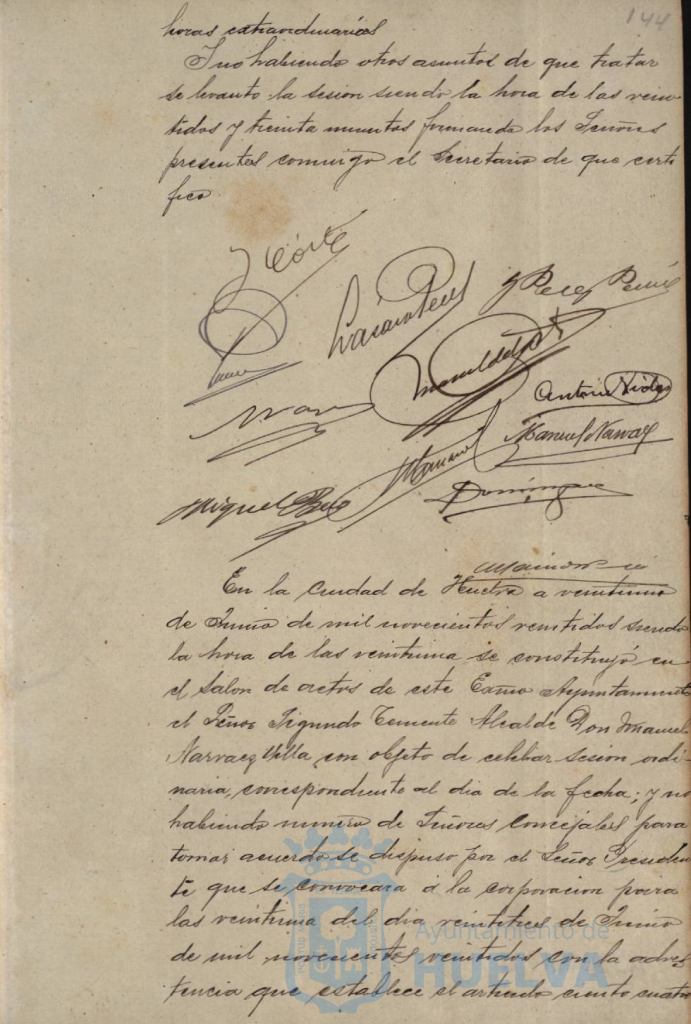 144
horas extraordinarias
Y no habiendo otros asuntos de que tratar
se levanto la sesion siendo la hora de las vein
tidos y treinta minutos firmando los Señores
presentes conmigo el Secretario de que certi
fico.
Perez
Antonio Hidalgo
Manuel Narvaez
Manuel
Miguel
Dominguez
En la Ciudad de Huelva a veintiuno
de Junio de mil novecientos veintidos siendo
la hora de las veintiuna se constituyó en
el Salon de actos de este Exmo Ayuntamiento
el Señor Segundo Teniente Alcalde Don Manuel
Narvaez Ulla con objeto de celebrar sesion ordi-
naria, correspondiente al dia de la fecha; y no
habiendo numero de Señores Concejales para
tomar acuerdo se dispuso por el Señor Presiden
te que se convocara á la corporacion para
las veintiuna del dia veintitres de Junio
de mil novecientos veintidos con la adver
tencia que establece el articulo ciento cuatro
Ayuntamiento de
HUELVA